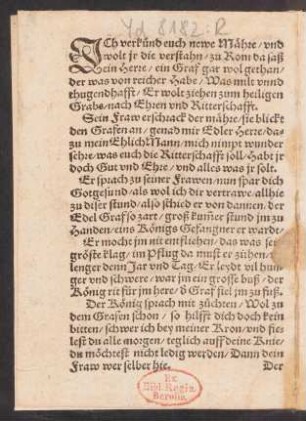 Yd 8182:R
ICh verkünd euch newe Mähre / vnd
wolt jr die verstahn / zu Rom da saß
ein Herre / ein Graf gar wol gethan /
der was von reicher Habe / Was milt vnnd
thugendhafft / Er wolt ziehen zum heiligen
Grabe / nach Ehren vnd Ritterschafft.
Sein Fraw erschrack der mähre / sie blickt
den Grafen an / genad mir Edler Herre / das-
zu mein Ehlich Mann / mich nimpt wunder
sehre / was euch die Ritterschafft soll / Habt jr
doch Gut vnd Ehre / vnd alles was jr solt.
Er sprach zu seiner Frawen / nun spar dich
Gott gesund / als wol ich dir vertrawe / allhie
zu diser stund / also schied er von dannen / der
Edel Graf so zart / groß kum̃er stund jm zu
Handen / eins Königs Gefangner er warde /
Er mocht jm nit entfliehen / das was sein
gröste klag / im Pflug da must er ziehen /
lenger denn Jar vnd Tag / Er leydt vil hun-
ger vnd schwere / war jm ein grosse buß / der
König rit für jm here / d Graf fiel jm zu fuß.
Der König sprach mit züchten / Wol zu
dem Grafen schon / so hilfft dich doch kein
bitten / schwer ich bey meiner Kron / vnd fie-
lest du alle morgen / teglich auff deine Knie /
du möchtest nicht ledig werden / Dann dein
Fraw wer selber hie.
Der
Ex
Bibl. Regia
Berolin.